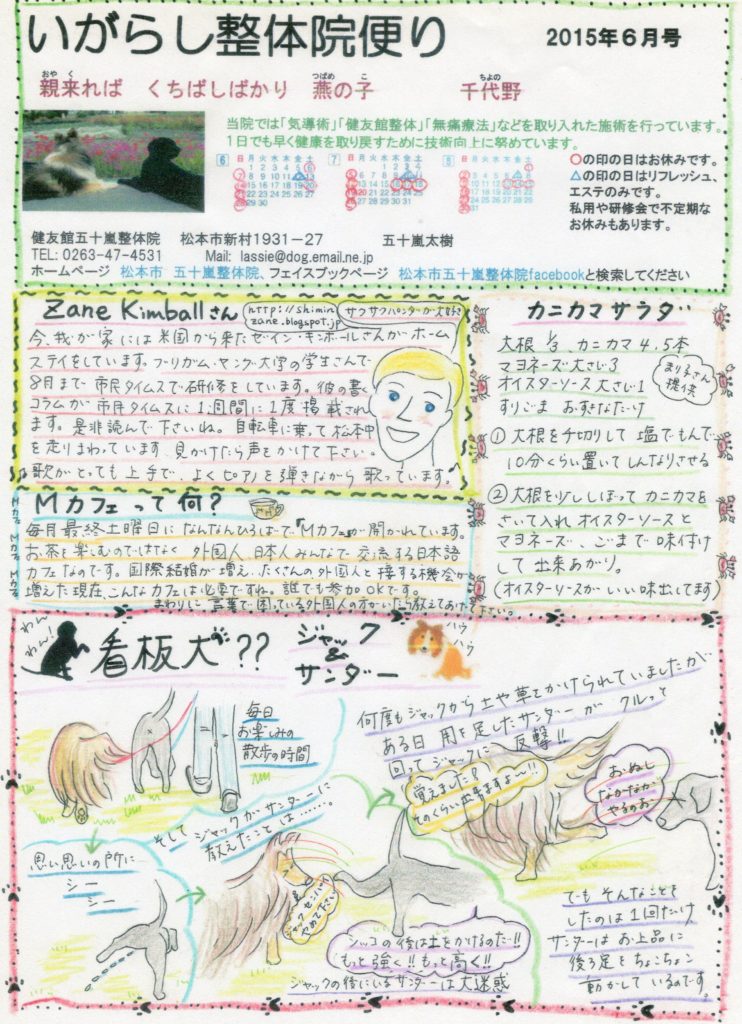 いがらし整体院便り 2015年6月号
親来れば くちばしばかり 燕の子 千代野
当院では「気導術」「健友館整体」「無痛療法」などを取り入れた施術を行っています。
1日でも早く健康を取り戻すために技術向上に努めています。
6 日月火水木金土
7 日月火水木金土
8 日月火水木金土
○の印の日はお休みです。
△の印の日はリフレッシュ、
エステのみです。
私用や研修会で不定期な
お休みもあります。
健友館五十嵐整体院 松本市新村1931-27 五十嵐太樹
TEL: 0263-47-4531 Mail: lassie@dog.email.ne.jp
ホームページ 松本市 五十嵐整体院、フェイスブックページ 松本市五十嵐整体院facebookと検索してください
Zane Kimballさん
http://shimin
zane.blogspot.jp
今、我が家には米国から来たゼイン・キンボールさんがホーム
ステイをしています。ブリガム・ヤング大学の学生さんで
8月まで市民タイムスで研修をしています。彼の書く
コラムが市民タイムスに1週間に1度掲載され
ます。是非読んで下さいね。自転車に乗って松本中
を走りまわっています、見かけたら声をかけて下さい。
歌がとっても上手で、よくピアノを弾きながら歌っています。
カニカマサラダ
大根1/3、カニカマ4.5本
マヨネーズ大さじ3
オイスターソース大さじ1
すりごま おすきなだけ
まりえさん
提供
①大根を千切りして塩でもんで
10分くらい置いてしんなりさせる
②大根を少ししぼってカニカマを
さいて入れオイスターソースと
マヨネーズ、ごまで味付け
して出来あがり。
(オイスターソースがいい味出してます)
Mカフェって何?
Mカフェ Mカフェ Mカフェ
毎月最終土曜日になんなんひろばで「Mカフェ」が開かれています。
お茶を楽しむのではなく外国人、日本人みんなで交流する日本語
カフェなのです。国際結婚が増え、たくさんの外国人と接する機会が
増えた現在、こんなカフェは必要ですね。誰でも参加OKです。
まわりに言葉で困っている外国人の方がいたら教えてあげて下さい。
わん
わん!
看板犬?? ジャック
&
サンダー
ハウ
ハウ
毎日
お楽しみの
散歩の時間
何度もジャックから土や草をかけられていましたが
ある日 用を足したサンダーがクルっと
回ってジャックに反撃!!
覚えました?
そのくらい出来ますよ〜!!
おぬし
なかなか
やるのお
思い思いの所に…
シー
シー
そしてジャックがサンダーに
教えたことは……。
ジャックセンパイ
やめて下さい
シッコの後は土をかけるのだ!!
もっと強く!!もっと高く!!
ジャックの後にいるサンダーは大迷惑
でもそんなことを
したのは1回だけ
サンダーはお上品に
後ろ足をちょこちょこ
動かしているのです。